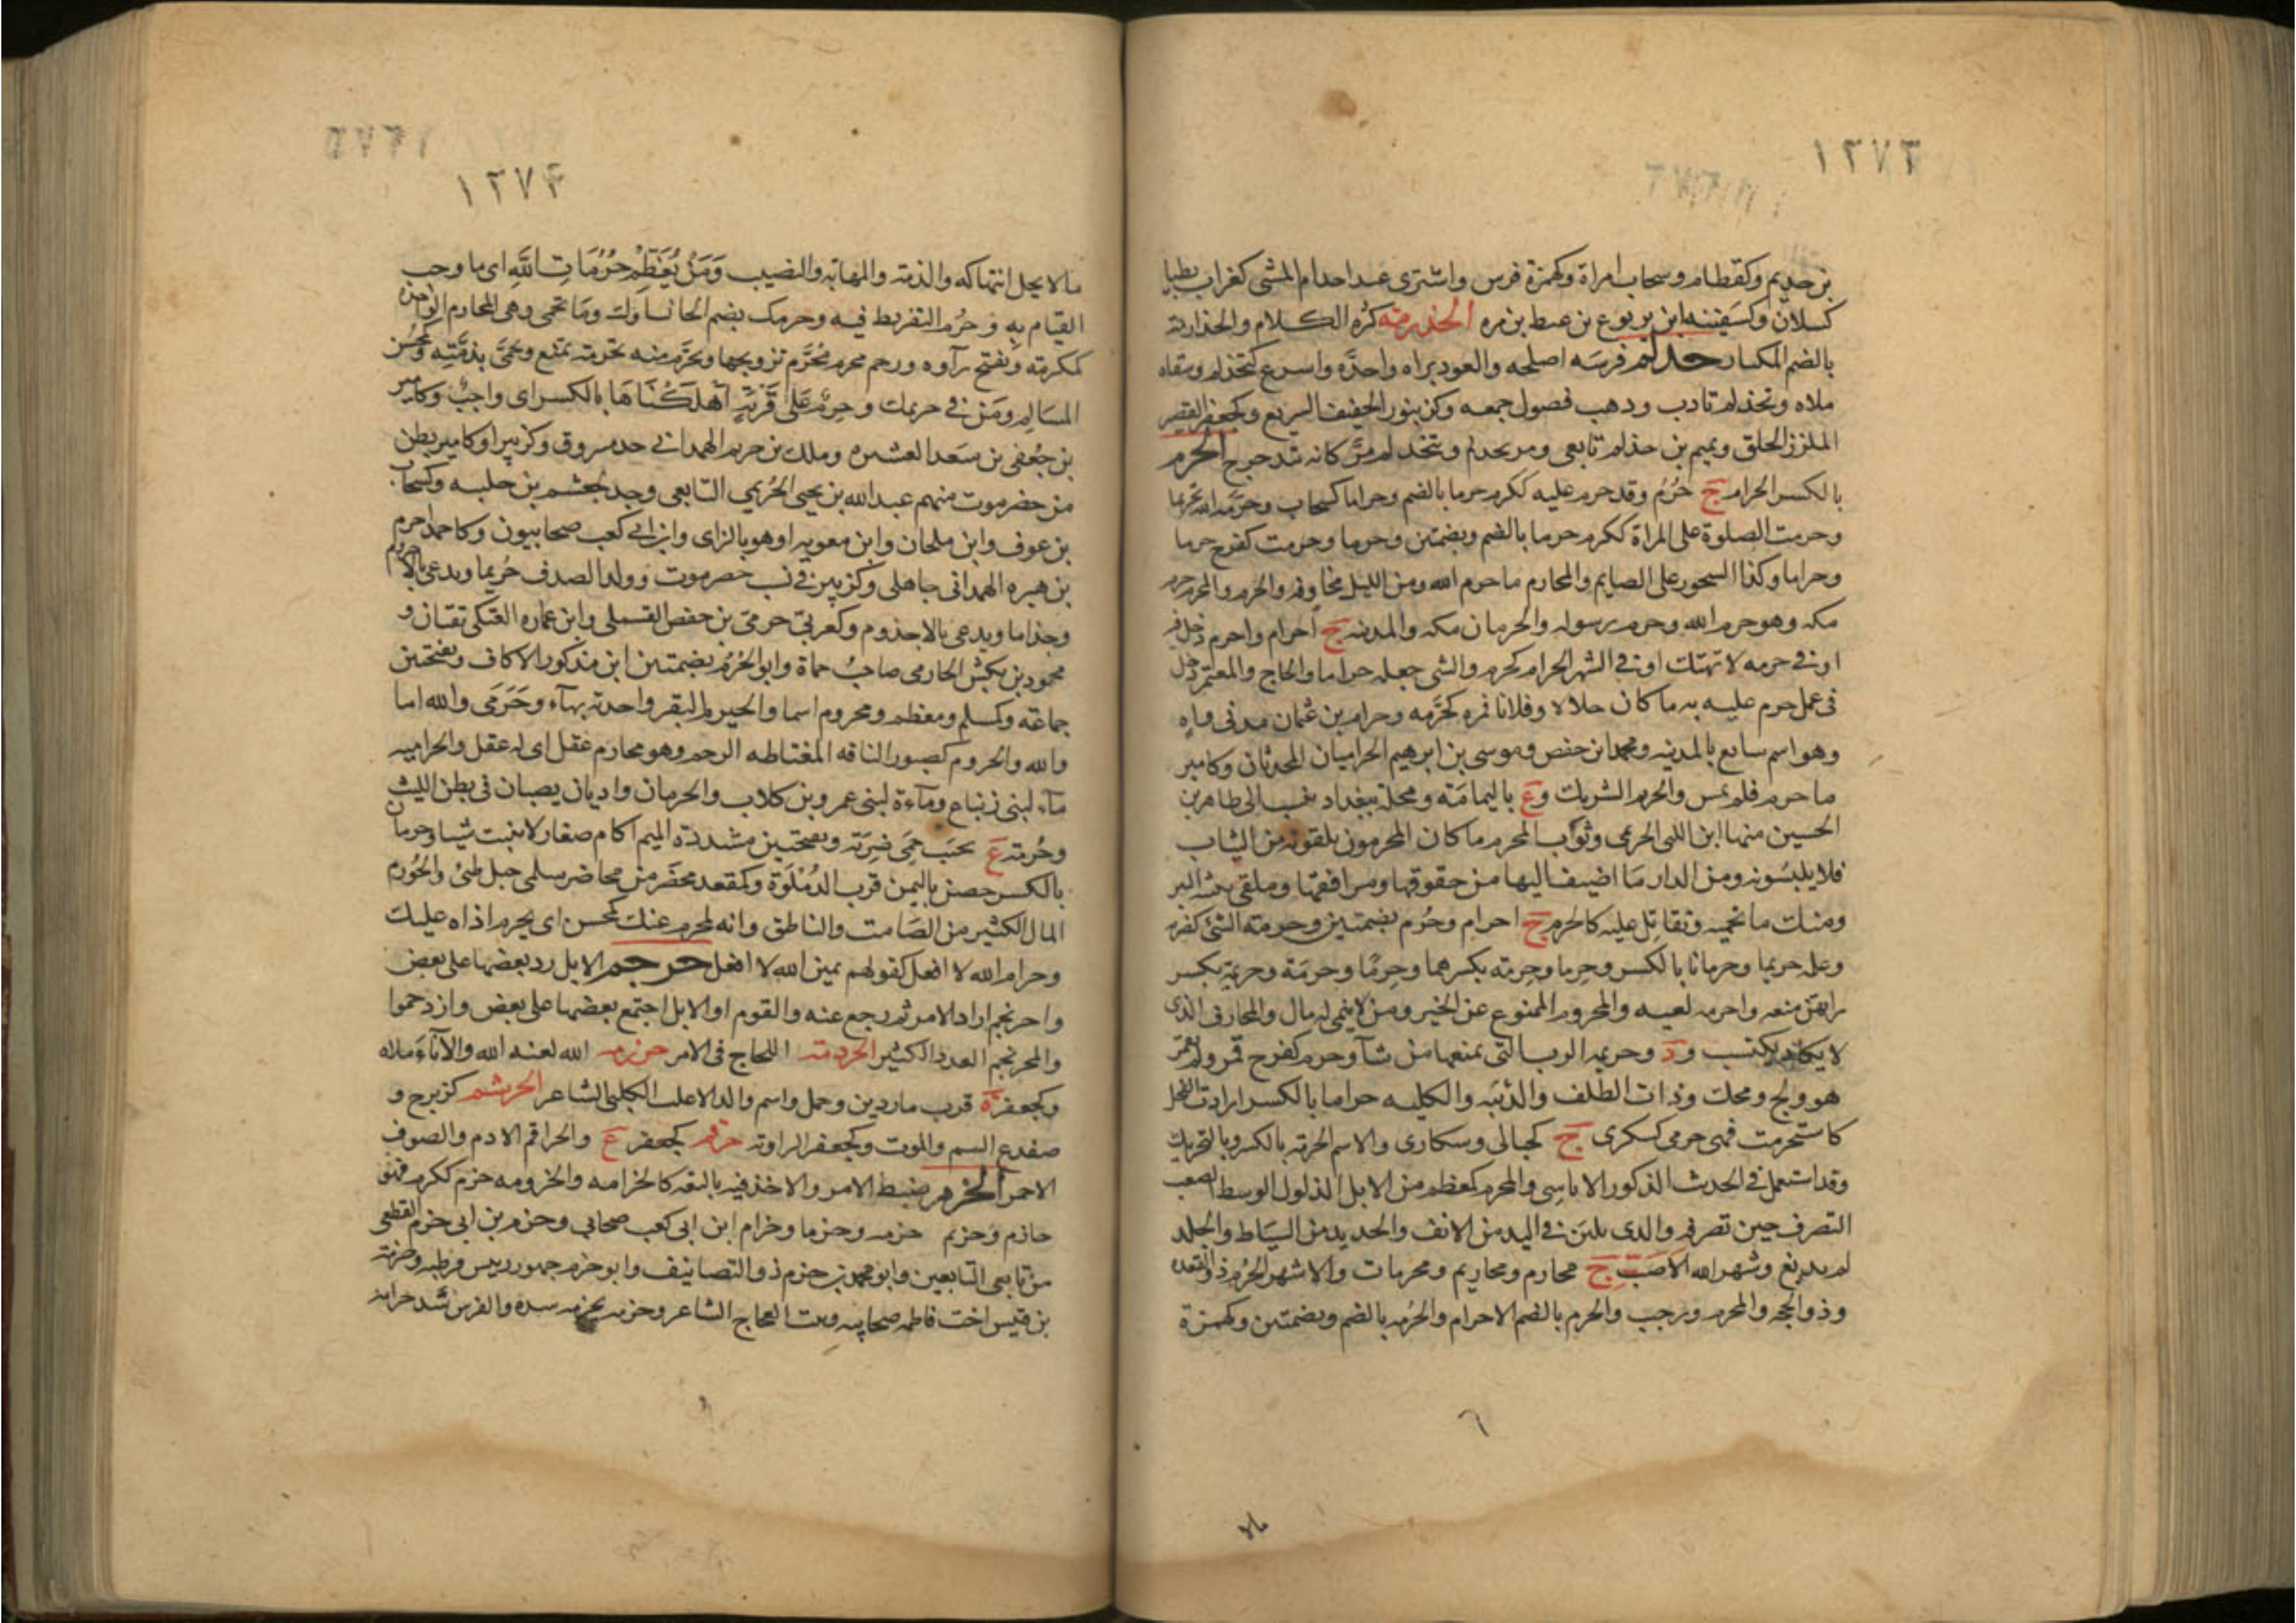 ١٢٧٣
بن حذيم وكقطام وسحاب امراة وكهمزة فرس واشترى عبدا حذام المشى كغراب بطيا
كسلان وكسفينه ابن يربوع بن عيط بن مره الحذرمته كثره الكلام والحذارمة
بالضم المكثار حذلم فرسه اصلحه والعود براه واحدَّه واسرع كتحذلم وسقاه
ملاه وتحذلم تادب وذهب فصول حمقه وكزنبور الخفيف السريع وكجعفر القصير
الملزز الخلق وتميم بن حذلم تابعى ومر يحذلم ويتحذلم مرَّ كانه يتدحرج الحرم
بالكسر الحرام ج حُرُمُ وقد حرم عليه ككرم حرما بالضم وحراما كسحاب وحرَّمه الله تحريما
وحرمت الصلوة على المراة ككرم حرما بالضم وبضمتين وحرما وحرمت كفرح حرما
وحراما وكذا السحور على الصايم والمحارم ما حرم الله ومن الليل مخاوفه والحرم والمحرم حرم
مكه وهو حرم الله وحرم رسوله والحرمان مكه والمدينه ج احرام واحرم دخل فيه
او فى حرمه لا تهتك او فى الشهر الحرام كحرم والشى جعله حراما والحاج والمعتمر دخل
فى عمل حرم عليه به ما كان حلالا وفلانا قمره كحرَّمه وحرام بن عثمان مدنى واهٍ
وهو اسم سايع بالمدينه ومحمد بن حفص وموسى بن ابرهيم الحراميان المحدثان وكامير
ما حرم فلم يمس والحريم الشريك وع باليمامَة ومحلة ببغداد تنسب الى طاهر بن
الحسين منها ابن اللتى الحريمى وثوب المحرم ما كان المحرمون يلقونه من الثياب
فلا يلبسُونه ومن الدار مَا اضيف اليها من حقوقها ومرافقها وملقى نبيثه البير
ومنك ما تحميه وتقاتل عليه كالحرم ج احرام وحُرُم بضمتين وحرمه الشئ كضربه
وعلمه حريما وحرمانا بالكسر وحِرما وحِرمة بكسرهما وحِرِمًا وحرمَة وحريمَة بكسر
رايهن منعه واحرمه لغيه والمحروم الممنوع عن الخير ومن لا ينمى له مال والمحارف الذى
لا يكاد يكتسب و د وحريمه الرب التى يمنعها من شآ وحرم كفرح قمر ولم يقمر
هو ولج ومحك وذات الظلف والذئبَه والكلبه حراما بالكسر ارادت الفحل
كاستحرمت فهى حرمى كسكرى ج كجبالى وسكارى والاسم الحرمة بالكسر وبالتحريك
وقد استعمل فى الحدث الذكور الاناسِى والمحرم كمعظم من الابل الذلول الوسط الصعب
التصرف حين تصرفه والذى يلين فى اليد من الانف والجديد من السيَاط والجلد
لم يدبغ وشهر الله الاصَبّ ج محارم ومحاريم ومحرمات والاشهر الحُرُم ذو القعده
وذو الحجه والمحرم ورجب والحرم بالضم الاحرام والحُرمه بالضم وبضمتين وكهمزة
١٢٧٤
ما لا يحل انتهاكه والذمة والمهابة والنصيب وَمَنْ يُعَظِّمْ حُرُمَاتِ اللَّهِ اى ما وجب
القيام بِه وحُرِّم التفريط فيه وحرمك بضم الحا نساوك وما تحمى وهى المحارم الواحده
كمكرمة وتفتح رآوه ورحم محرم مُحَرَّم تزوجها وتحرَّم منه بحرمة تمنع وتحمَّى بذمَّتِه وكمحسِن
المسَالم ومَن فى حريمك وحِرمٌ عَلى قَرْيَةٍ اَهْلَكْنَاهَا بالكسر اى واجبٌ وكامير
بن جُعفى بن سَعد العشيره وملك بن حريم الهمدانى جد مسروق وكزبير او كامير بطن
من حضرموت منهم عبد الله بن يحيى الحُريمي التابعى وجد لجعشم بن خلبيه وكسحاب
بن عوف وابن ملحان وابن معويه او هو بالزاى وابن ابى كعب صحابيون وكاحمد احرم
بن هبره الهمدانى جاهلى وكزبير فى نسب حضرموت وولد الصدف حُريما ويدعى بالاحروم
وجذاما ويدعى بالاجذوم وكعربىّ حرمىّ بن حفص القسملى وابن عماره العتكى ثقتان و
محمود بن تكش الحارمى صاحبُ حماة وابو الحُرُم بضمتين ابن مذكور الاكاف وبفتحتين
جماعَه وكمسلم ومعظم ومحروم اسما والحيرم البقر واحدته بهآء وحَرَمَى والله اما
والله والحروم كصبور الناقه المغتاطه الرحم وهو محارم عقل اى له عقل والحراميه
مآء لبنى زنباع ومآءة لبنى عمرو بن كلاب والحرمان واديان يصبان فى بطن الليث
وحُرمة ع بجنب حِمَى ضِرَيّه وبفتحتين مشددة الميم اكام صغار لا تنبت شيا وحرمان
بالكسر حصن باليمن قرب الدُمْلَوَة وكمقعد محضَر من محاضر سلمى جبل طئ والحَورم
المال الكثير من الصَامت والناطق وانه لمحرم عنك كمحسن اى يحرم اذاه عليك
وحرام الله لا افعل كقولهم يمين الله لا افعل حرجم الابل رد بعضها على بعض
واحرنجم اراد الامر ثم رجع عنه والقوم او الابل اجتمع بعضها على بعض وازدحموا
والمحرنجم العدد الكثير الحردمة اللجاج فى الامر حرزمه الله لعنه الله والانآءَ ملاه
وكجعفر ة قرب ماردين وجمل واسم والد الاغلب الكلبى الشاعر الحرشم كزبرج و
ضفدع السم والموت وكجعفر الراوية حرقم كجعفر ع والحراقم الادم والصوف
الاحمر الحزم ضبط الامر والاخذ فيه بالثقه كالحزامه والحزومه حزم ككرم فهو
حازم وَحزيم حزمه وحزما وخزام ابن ابى كعب صحابى وحزم بن ابى حزم القطعى
من تابعى التابعين وابو محمد بن حزم ذو التصانيف وابو حزم جهور رييس قرطبه وحزمة
بن قيس اخت فاطمه صحابيه وبنت العجاج الشاعر وحزمه يحزمه سده والفرس شد حزامه